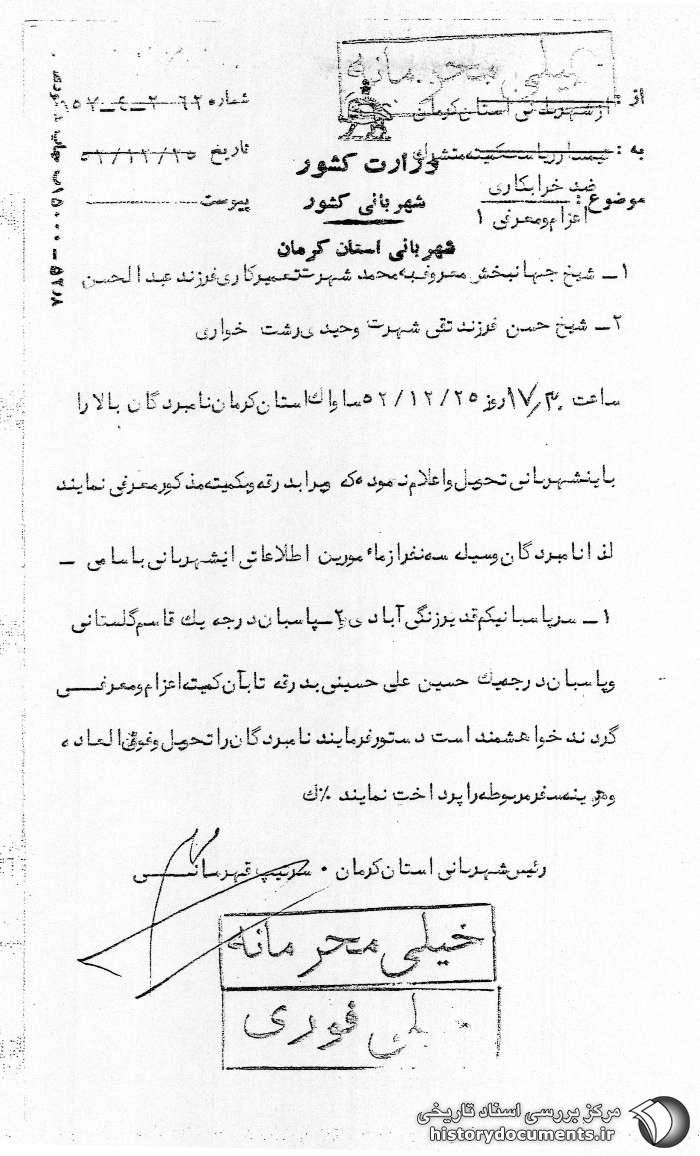 خیلی محرمانه
از : از شهربانی استان کرمان
شماره ۲۶۲-۲-۴-۵۷
به : تیمسار ریاست کمیته مشترک
تاریخ ۵۲/۱۲/۲۵
وزارت کشور
ضد خرابکاری
موضوع : اعزام و معرفی ۱
شهربانی کشور
پیوست
شهربانی استان کرمان
۱ـ شیخ جهانبخش معروف به محمد شهرت تعمیرکاری فرزند عبدالحسن
۲ـ شیخ حسن فرزند تقی شهرت وحیدی رشت خواری
ساعت ۱۷٫۳۰ روز ۵۲/۱۲/۲۵ ساواک استان کرمان نامبردگان بالا را
باینشهربانی تحویل و اعلام نموده که ویرا بدرقه و بکمیته مذکور معرفی نمایند
لذا نامبردگان وسیله سه نفر از ماٴمورین اطلاعاتی اینشهربانی باسامی ـ
۱ـ سرپاسبانیکم قدیر زنگی آبادی ۲ـ پاسبان درجه یک قاسم گلستانی
و پاسبان درجه یک حسین علی حسینی بدرقه تا بآن کمیته اعزام و معرفـــی
گردند خواهشمند است دستور فرمایند نامبردگان را تحویل و فوق العاده
و هزینه سفر مربوطه را پرداخت نمایند ٪ک
رئیس شهربانی استان کرمان ۰ سرتیپ قهرمانــــی
خیلی محرمانه
خیلی فوری
مرکز بررسی اسناد تاریخی
historydocuments.ir